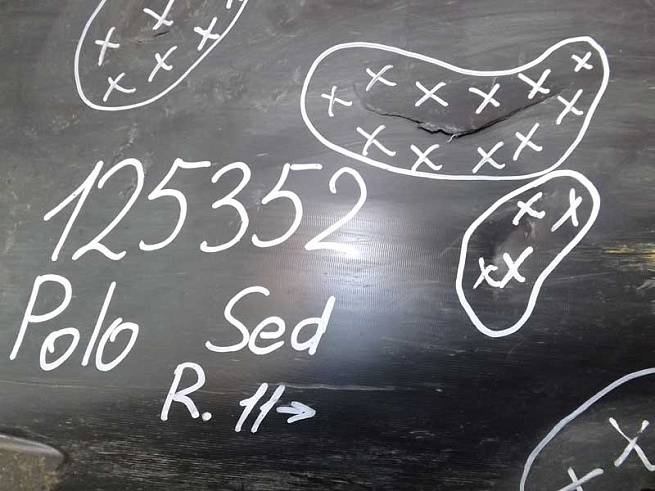 125352
Polo Sed
R. 11→